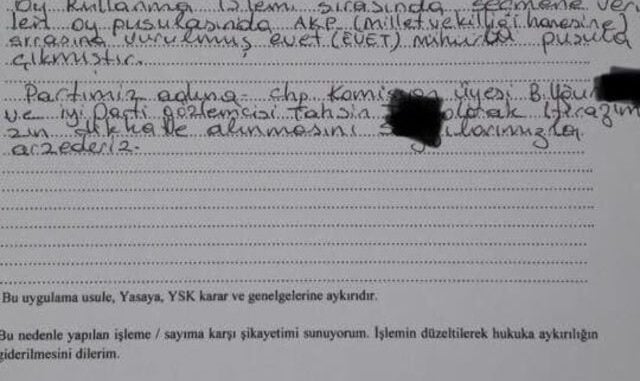 Oy kullanma işlemi sırasında seçmene veri
len oy pusulasında AKP (milletvekilliği hanesine)
arrasına vurulmuş evet (EVET) mühürlü pusula
çıkmıştır.
Partimiz adına chp Komisyon üyesi B. Uğur
ve iyi Parti gözlemcisi Tahsin olarak itirazım
zın dikkate alınmasını saygılarımızla
arzederiz.
Bu uygulama usule, Yasaya, YSK karar ve genelgelerine aykırıdır.
Bu nedenle yapılan işleme / sayıma karşı şikayetimi sunuyorum. İşlemin düzeltilerek hukuka aykırılığın
giderilmesini dilerim.